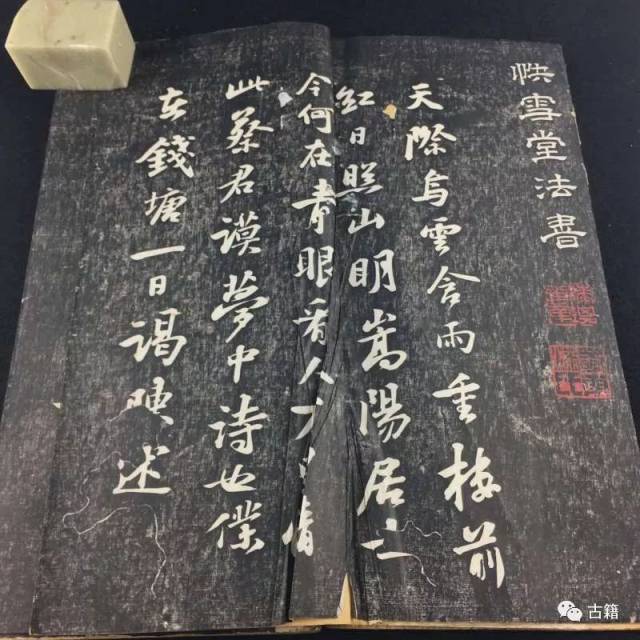 快雪堂法書
天際烏雲含雨重楼前
紅日照山明嵩陽居士
今何在青眼看人万里情
此蔡君謨夢中詩也僕
在錢塘一日謁陳述
古籍